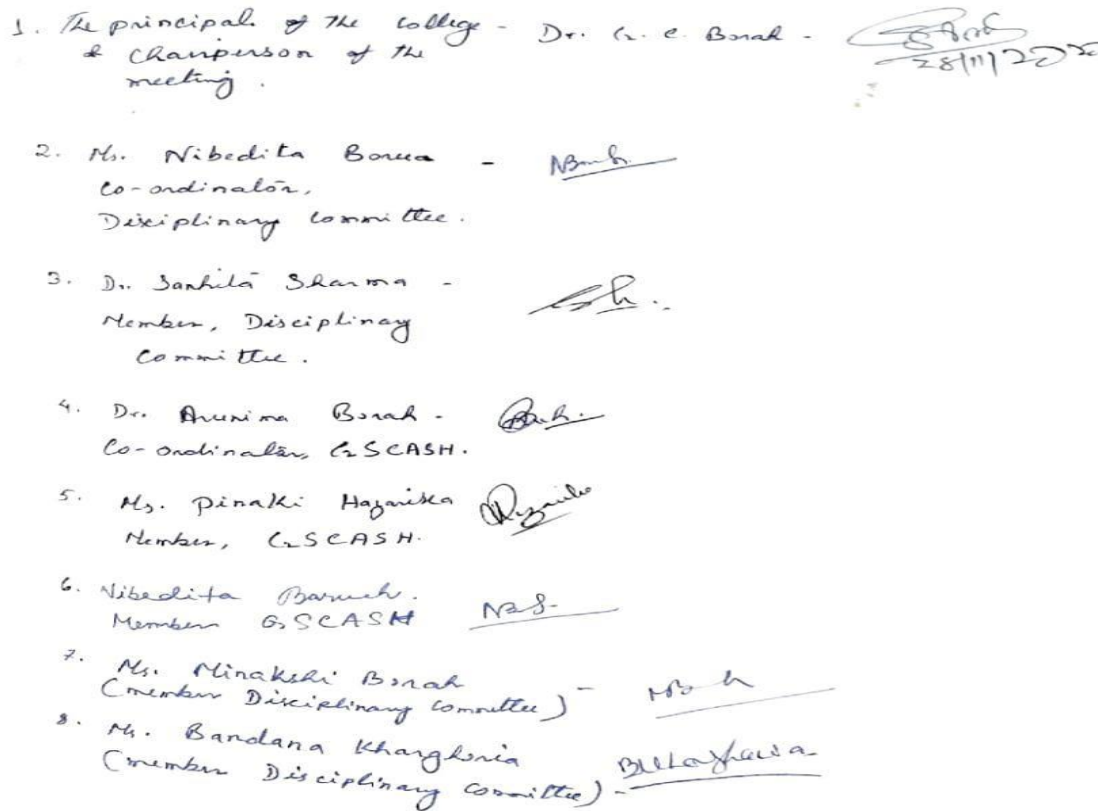 1. The principal of the college - Dr. G. C. Borah -
& Chairperson of the
meeting.
28/11/2020
2. Ms. Nibedita Borua -
Co-ordinator,
Disciplinary Committee.
3. Dr. Sanhita Sharma -
Member, Disciplinay
Committee.
4. Dr. Arunima Borah -
Co-ordinator, GSCASH.
5. Ms. Pinakhi Hazarika
Member, GSCASH.
6. Nibedita Baruah.
Member GSCASH
7. Ms. Minakshi Borah
(member Disciplinary Committee) -
8. Ms. Bandana Khargharia
(member Disciplinary Committee) -